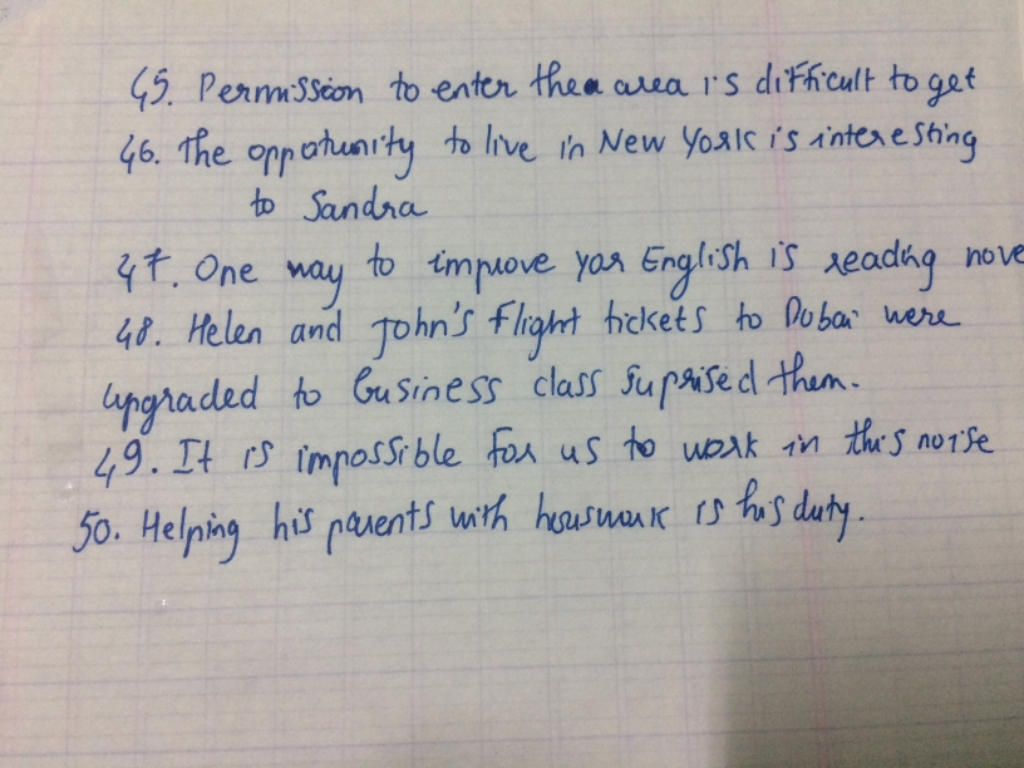 45. Permission to enter the area is difficult to get
46. The oppotunity to live in New York is interesting
to Sandra
47. One way to improve your English is reading nove
48. Helen and John's flight tickets to Dubai were
upgraded to business class suprised them.
49. It is impossible for us to work in this noise
50. Helping his parents with houswork is his duty.